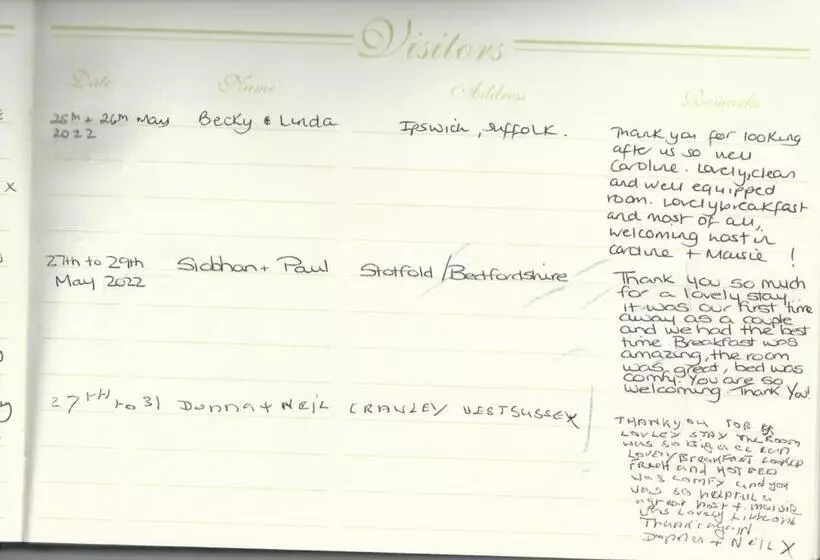 Visitors
Date Name Address Remarks
25th + 26th May Becky & Linda Ipswich, Suffolk.
2022
Thank you for looking
after us so well
Caroline. Lovely, clean
and well equipped
room. Lovely breakfast
and most of all,
welcoming host in
Caroline + Maisie !
27th to 29th Siobhan + Paul Stotfold / Bedfordshire
May 2022
Thank you so much
for a lovely stay.
it was our first time
away as a couple
and we had the best
time. Breakfast was
amazing, the room
was great, bed was
comfy. You are so
welcoming. Thank You!
27TH to 31 Donna + NEIL CRAWLEY WEST SUSSEX
THANKYOU FOR
LOVLEY STAY THE ROOM
was so Big
LOVELY BREAKFAST COOKED
FRESH and HOT BED
was comfy and you
was so helpfull
a great host + maisie
was Lovely
Thanks again
Donna + Neil X
x